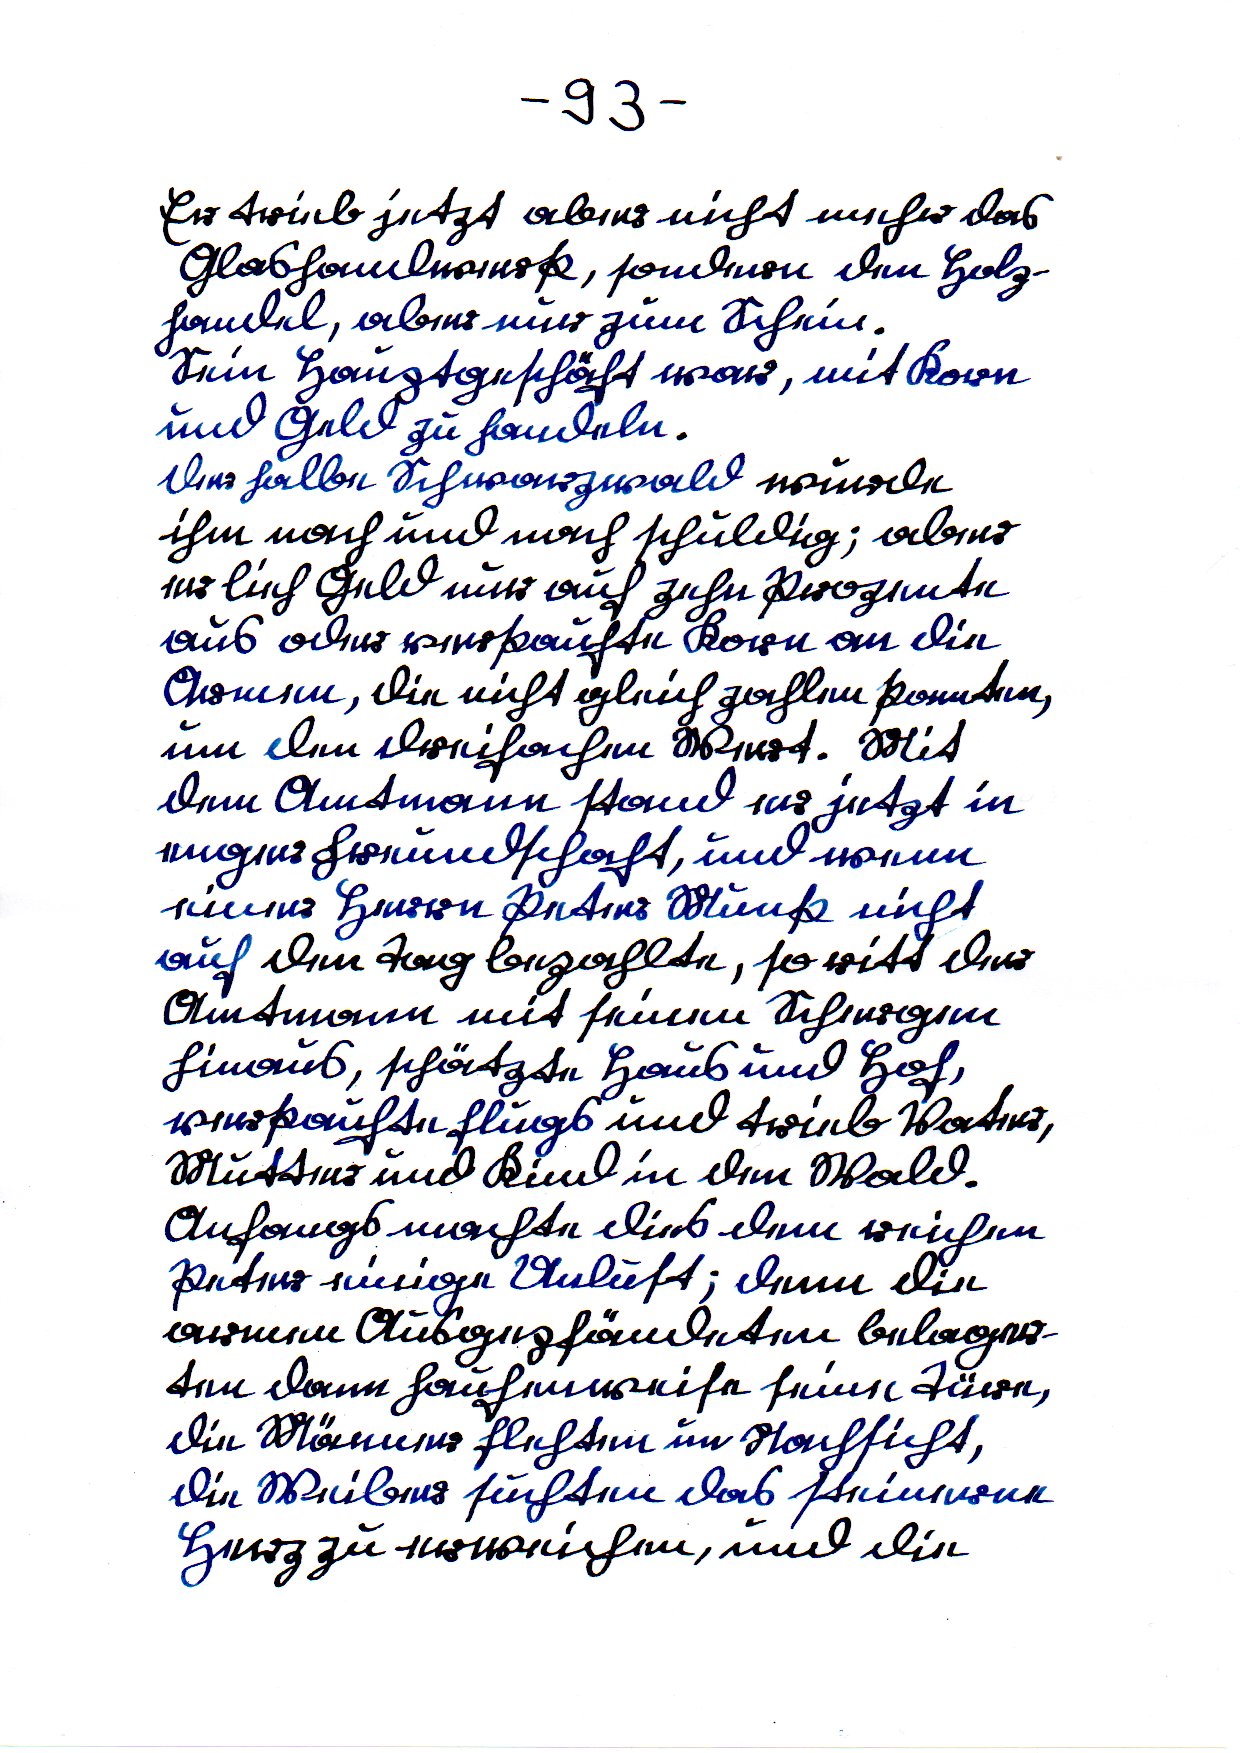 -93-
Er trieb jetzt aber nicht mehr das
Glashandwerk, sondern den Holz-
handel, aber nur zum Schein.
Sein Hauptgeschäft war, mit Korn
und Geld zu handeln.
Der halbe Schwarzwald wurde
ihm nach und nach schuldig; aber
er lieh Geld nur auf zehn Prozente
aus oder verkaufte Korn an die
Armen, die nicht gleich zahlen konnten,
um den dreifachen Wert. Mit
dem Amtmann stand er jetzt in
enger Freundschaft, und wenn
einer Herrn Peter Munk nicht
auf den Tag bezahlte, so ritt der
Amtmann mit seinen Schergen
hinaus, schätzte Haus und Hof,
verkaufte flugs und trieb Vater,
Mutter und Kind in den Wald.
Anfangs machte dies dem reichen
Peter einige Unlust; denn die
armen Ausgepfändeten belager-
ten dann haufenweise seine Türe,
die Männer flehten um Nachsicht,
die Weiber suchten das steinerne
Herz zu erweichen, und die